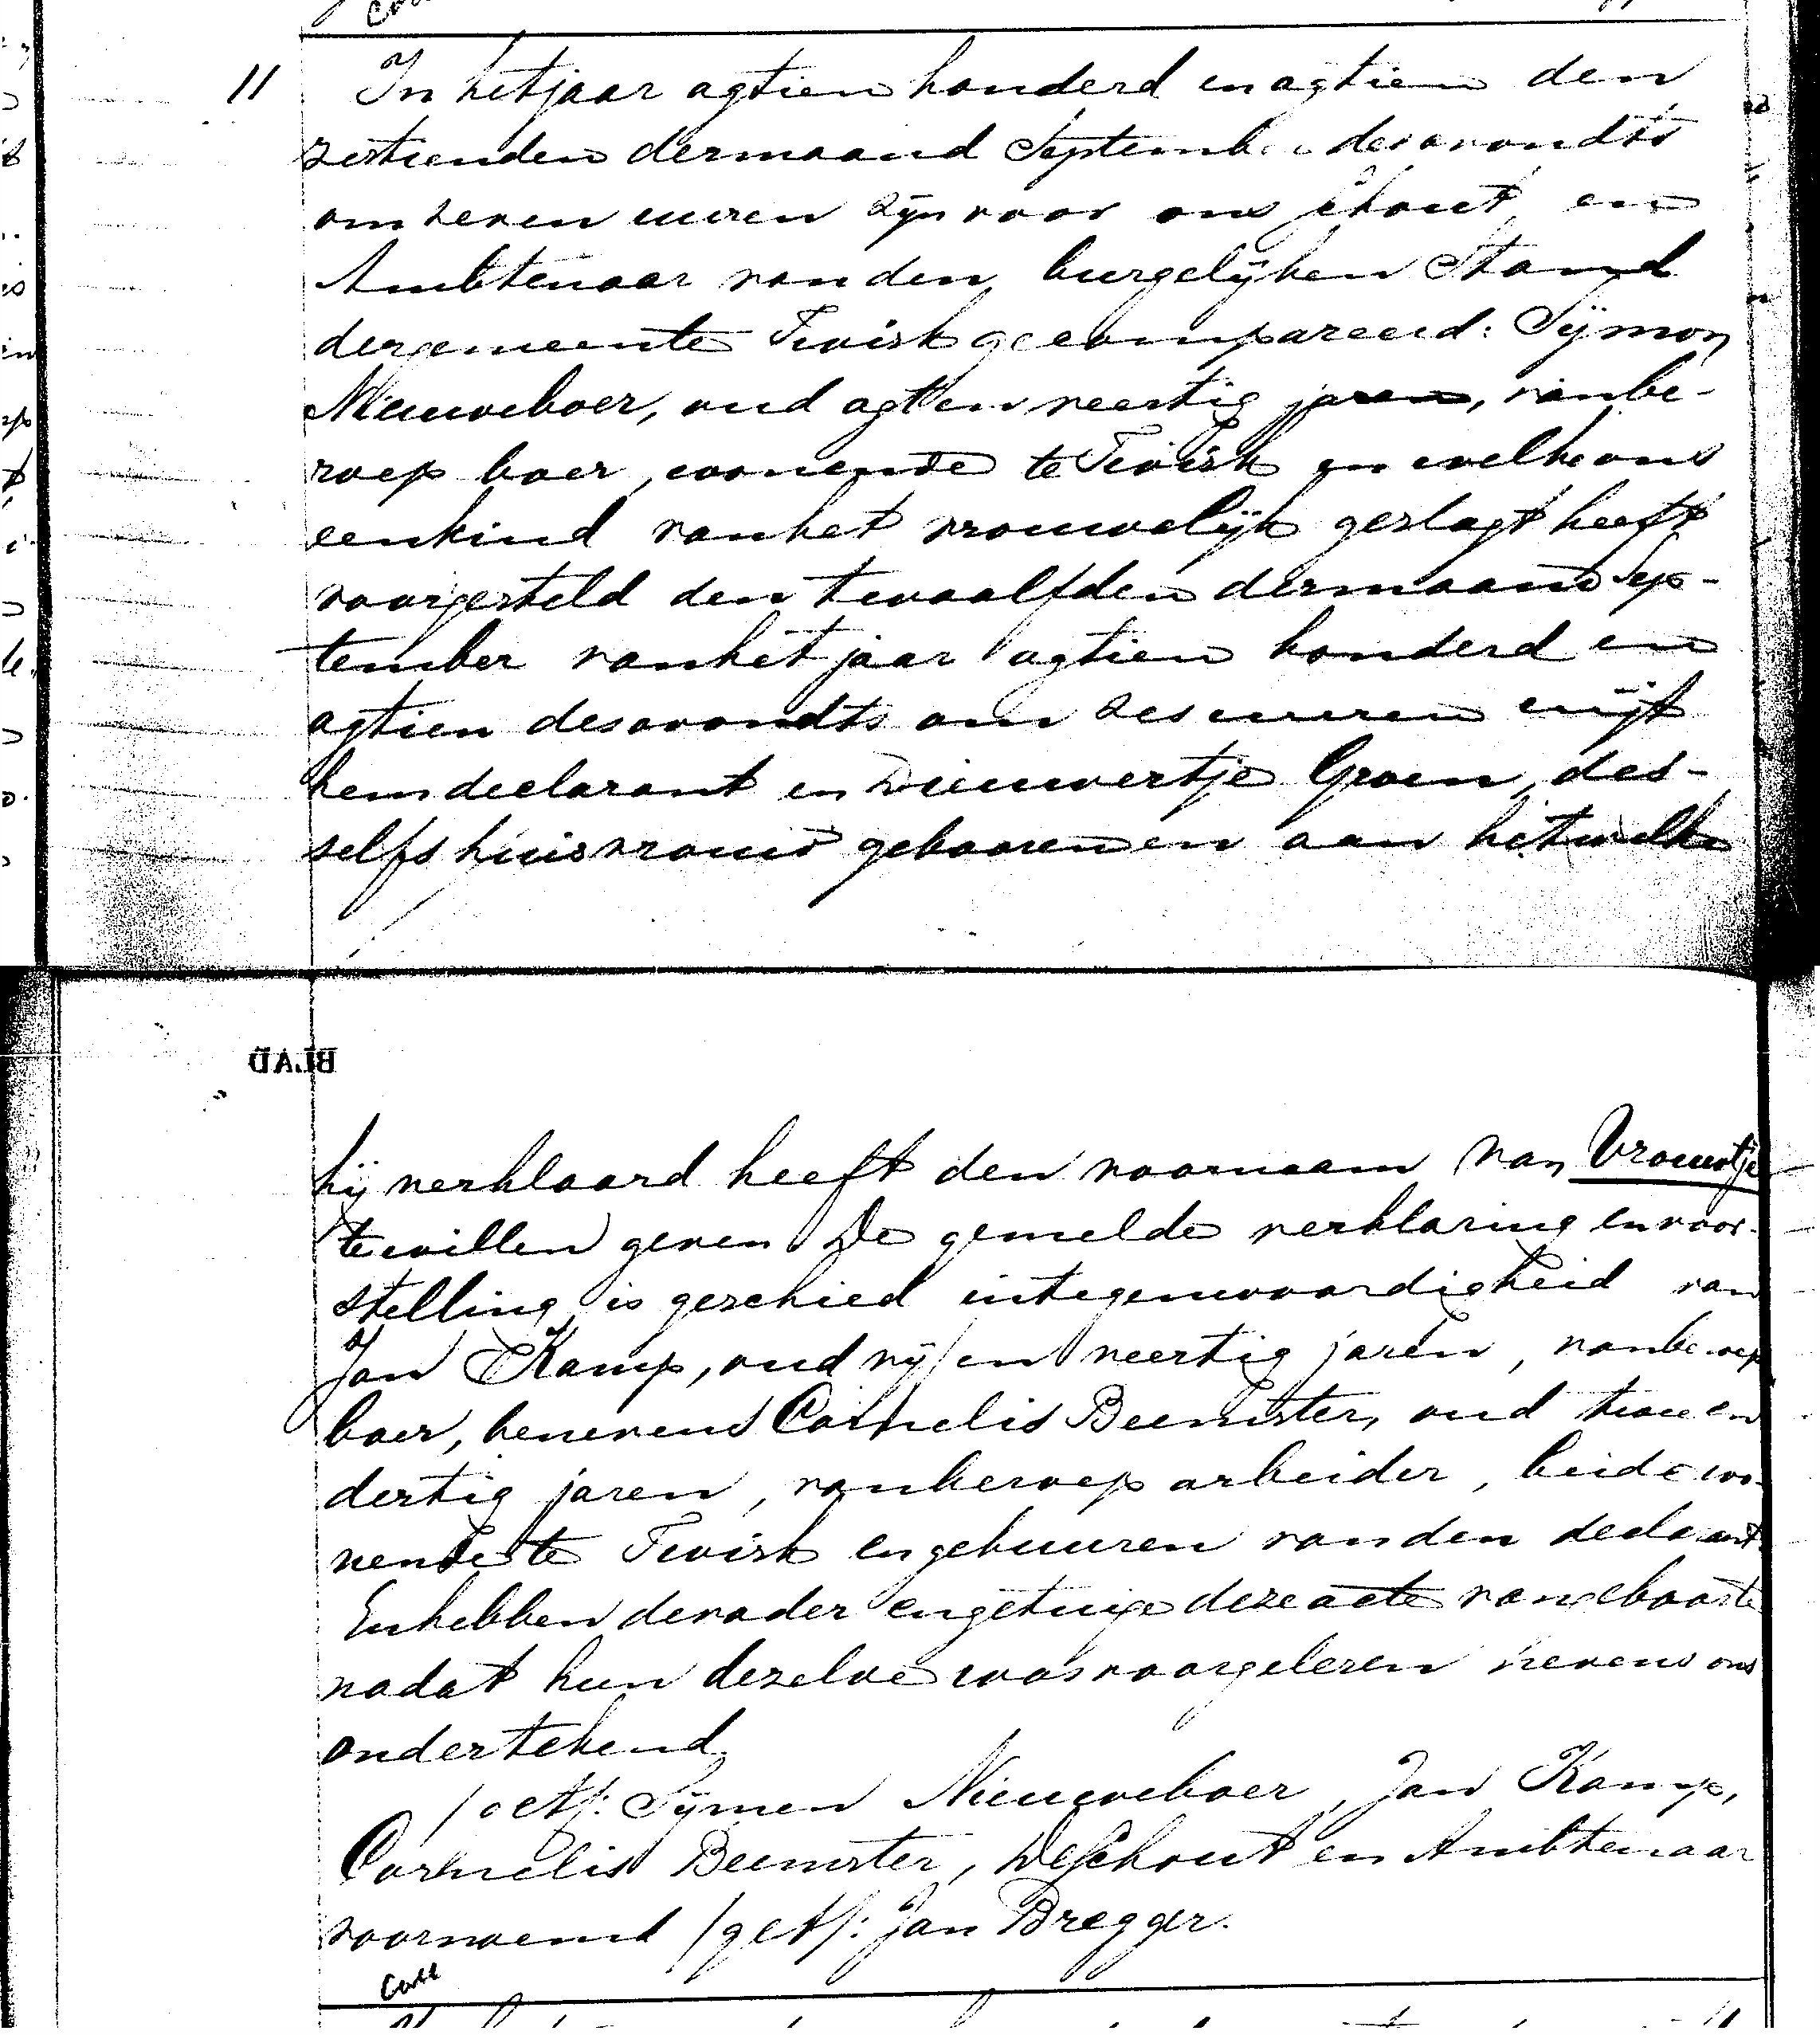 11 In het jaar agtien honderd en agtien den
zestienden der maand September des avondts
om zeven uuren zijn voor ons schout en
Ambtenaar van den burgelijken Stand
der gemeente Twisk gecompareerd: Sijmon
Nieuweboer, oud agt en veertig jaren, van be-
roep boer, wonende te Twisk en welke ons
een kind van het vrouwelijk geslagt heeft
voorgesteld den twaalfden der maand Sep-
tember van het jaar agtien honderd en
agtien des avondts om zes uuren uijt
hem declarant en Dieuwertje Groen, des-
selfs huisvrouw gebooren en aan het welke
BLAD
hij verklaard heeft den voornaam van Vrouwtje
te willen geven De gemelde verklaring en voor-
stelling is geschied in tegenwoordigheid van
Jan Kamp, oud vijf en veertig jaren, van beroep
boer, benevens Cornelis Beemster, oud twee en
dertig jaren, van beroep arbeider, beide wo-
nende te Twisk en gebuuren van den declarant
En hebben de vader en getuige deze acte van geboorte
nadat hun dezelve was voorgelezen nevens ons
ondertekend
/get/: Sijmen Nieuweboer, Jan Kamp,
Cornelis Beemster, De Schout en Ambtenaar
voornoemd /get/: Jan Bregger.
Coll